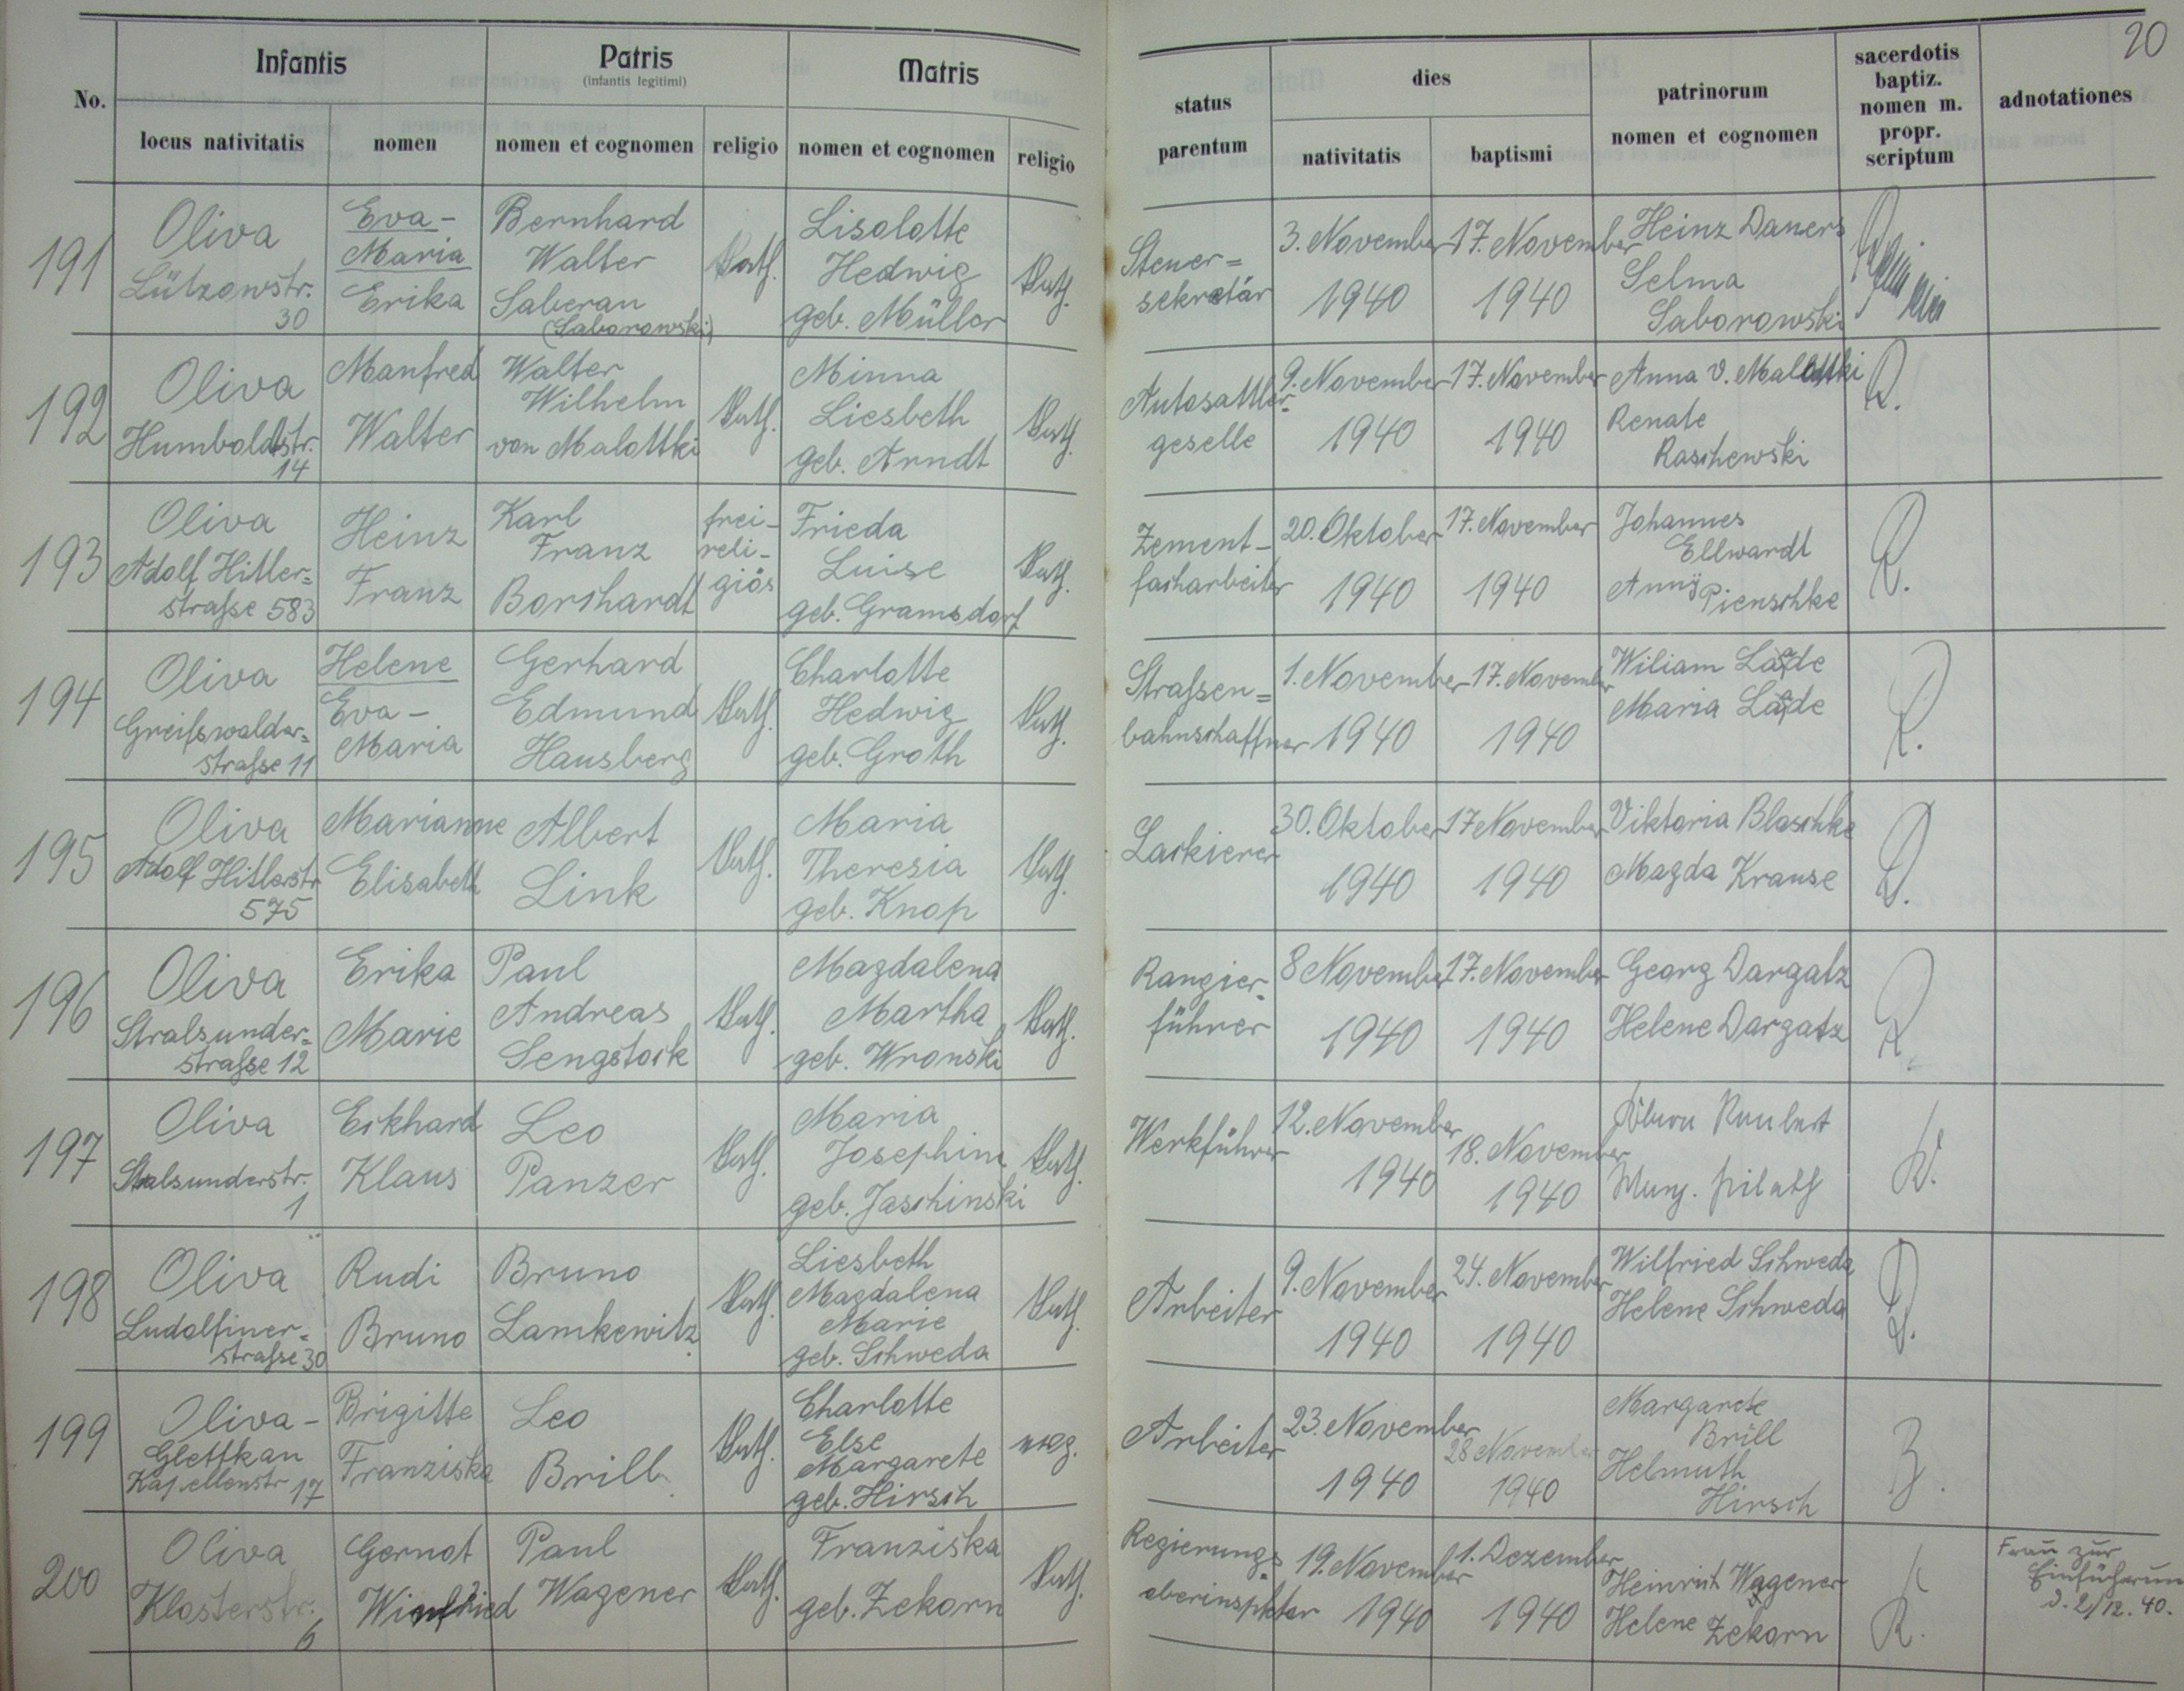 20
No.
Infantis
Patris
(infantis legitimi)
Matris
status parentum
dies
patrinorum nomen et cognomen
sacerdotis baptiz. nomen m. propr. scriptum
adnotationes
locus nativitatis
nomen
nomen et cognomen
religio
nomen et cognomen
religio
nativitatis
baptismi
191
Oliva
Lützowstr.
30
Eva-
Maria
Erika
Bernhard
Walter
Saberau
(Saborowski)
kath.
Liselotte
Hedwig
geb. Müller
kath.
Steuer=
sekretär
3. November
1940
17. November
1940
Heinz Daners
Selma
Saborowski
192
Oliva
Humboldtstr.
14
Manfred
Walter
Walter
Wilhelm
von Malottki
kath.
Minna
Liesbeth
geb. Arndt
kath.
Autosattler-
geselle
9. November
1940
17. November
1940
Anna v. Malottki
Renate
Raschewski
R.
193
Oliva
Adolf Hitler=
strasse 583
Heinz
Franz
Karl
Franz
Borchardt
frei-
reli-
giös
Frieda
Luise
geb. Gramsdorf
kath.
Zement-
facharbeiter
20. Oktober
1940
17. November
1940
Johannes
Ellwardt
Anny
Pienschke
R.
194
Oliva
Greifswalder=
strasse 11
Helene
Eva-
Maria
Gerhard
Edmund
Hausberg
kath.
Charlotte
Hedwig
geb. Groth
kath.
Strassen=
bahnschaffner
1. November
1940
17. November
1940
Wiliam
Maria
R.
195
Oliva
Adolf Hitlerstr
575
Marianne
Elisabeth
Albert
Link
kath.
Maria
Theresia
geb. Knop
kath.
Lackierer
30. Oktober
1940
17 November
1940
Viktoria Blaschke
Magda Krause
R.
196
Oliva
Stralsunder=
strasse 12
Erika
Marie
Paul
Andreas
Sengstock
kath.
Magdalena
Martha
geb. Wronski
kath.
Rangier-
führer
8 November
1940
17. November
1940
Georg Dargatz
Helene Dargatz
R.
197
Oliva
Stralsunderstr.
1
Eckhard
Klaus
Leo
Panzer
kath.
Maria
Josephine
geb. Jaschinski
kath.
Werkführer
12. November
1940
18. November
1940
198
Oliva
Ludolfiner-
strasse 30
Rudi
Bruno
Bruno
Lamkewitz
kath.
Liesbeth
Magdalena
Marie
geb. Schweda
kath.
Arbeiter
9. November
1940
24. November
1940
Wilfried Schweda
Helene Schweda
R.
199
Oliva-
Glettkau
Kapellenstr 17
Brigitte
Franziska
Leo
Brill
kath.
Charlotte
Else
Margarete
geb. Hirsch
evg.
Arbeiter
23. November
1940
28 November
1940
Margarete
Brill
Helmuth
Hirsch
200
Oliva
Klosterstr.
6
Gernot
Winfried
Paul
Wagener
kath.
Franziska
geb. Zekorn
kath.
Regierungs-
oberinspktor
19. November
1940
1. Dezember
1940
Heinrich Wagener
Helene Zekorn
R.
Frau zur
d. 2/12. 40.